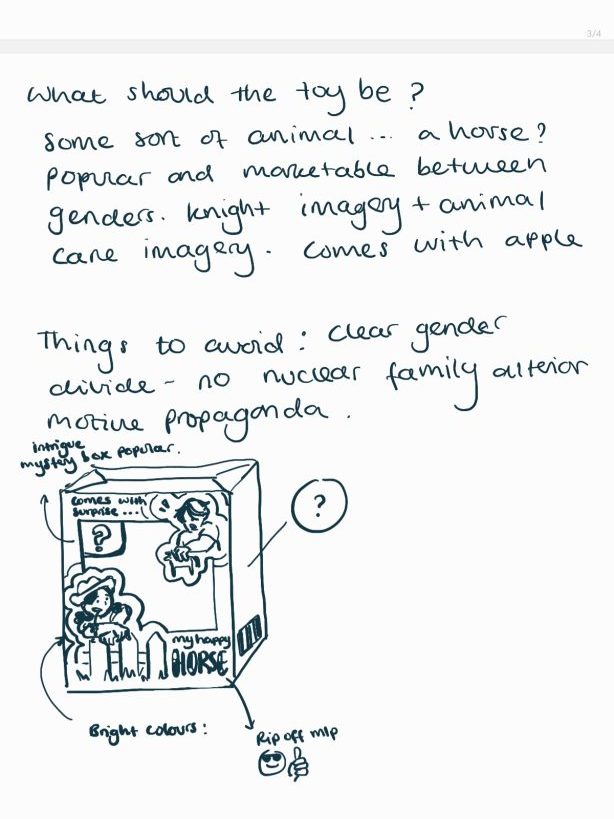 3/4
What should the toy be ?
Some sort of animal ... a horse?
popular and marketable between
genders. knight imagery + animal
care imagery. comes with apple
Things to avoid : clear gender
divide - no nuclear family alterior
motive propaganda.
intrigue
mystery box popular.
comes with
surprise ...!
?
?
my happy
HORSE
Bright colours :
Rip off mlp